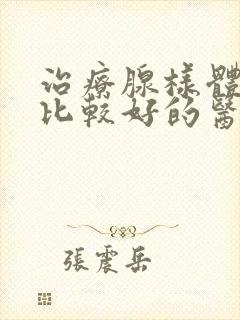 治療腺樣體
比較好的醫
張震岳